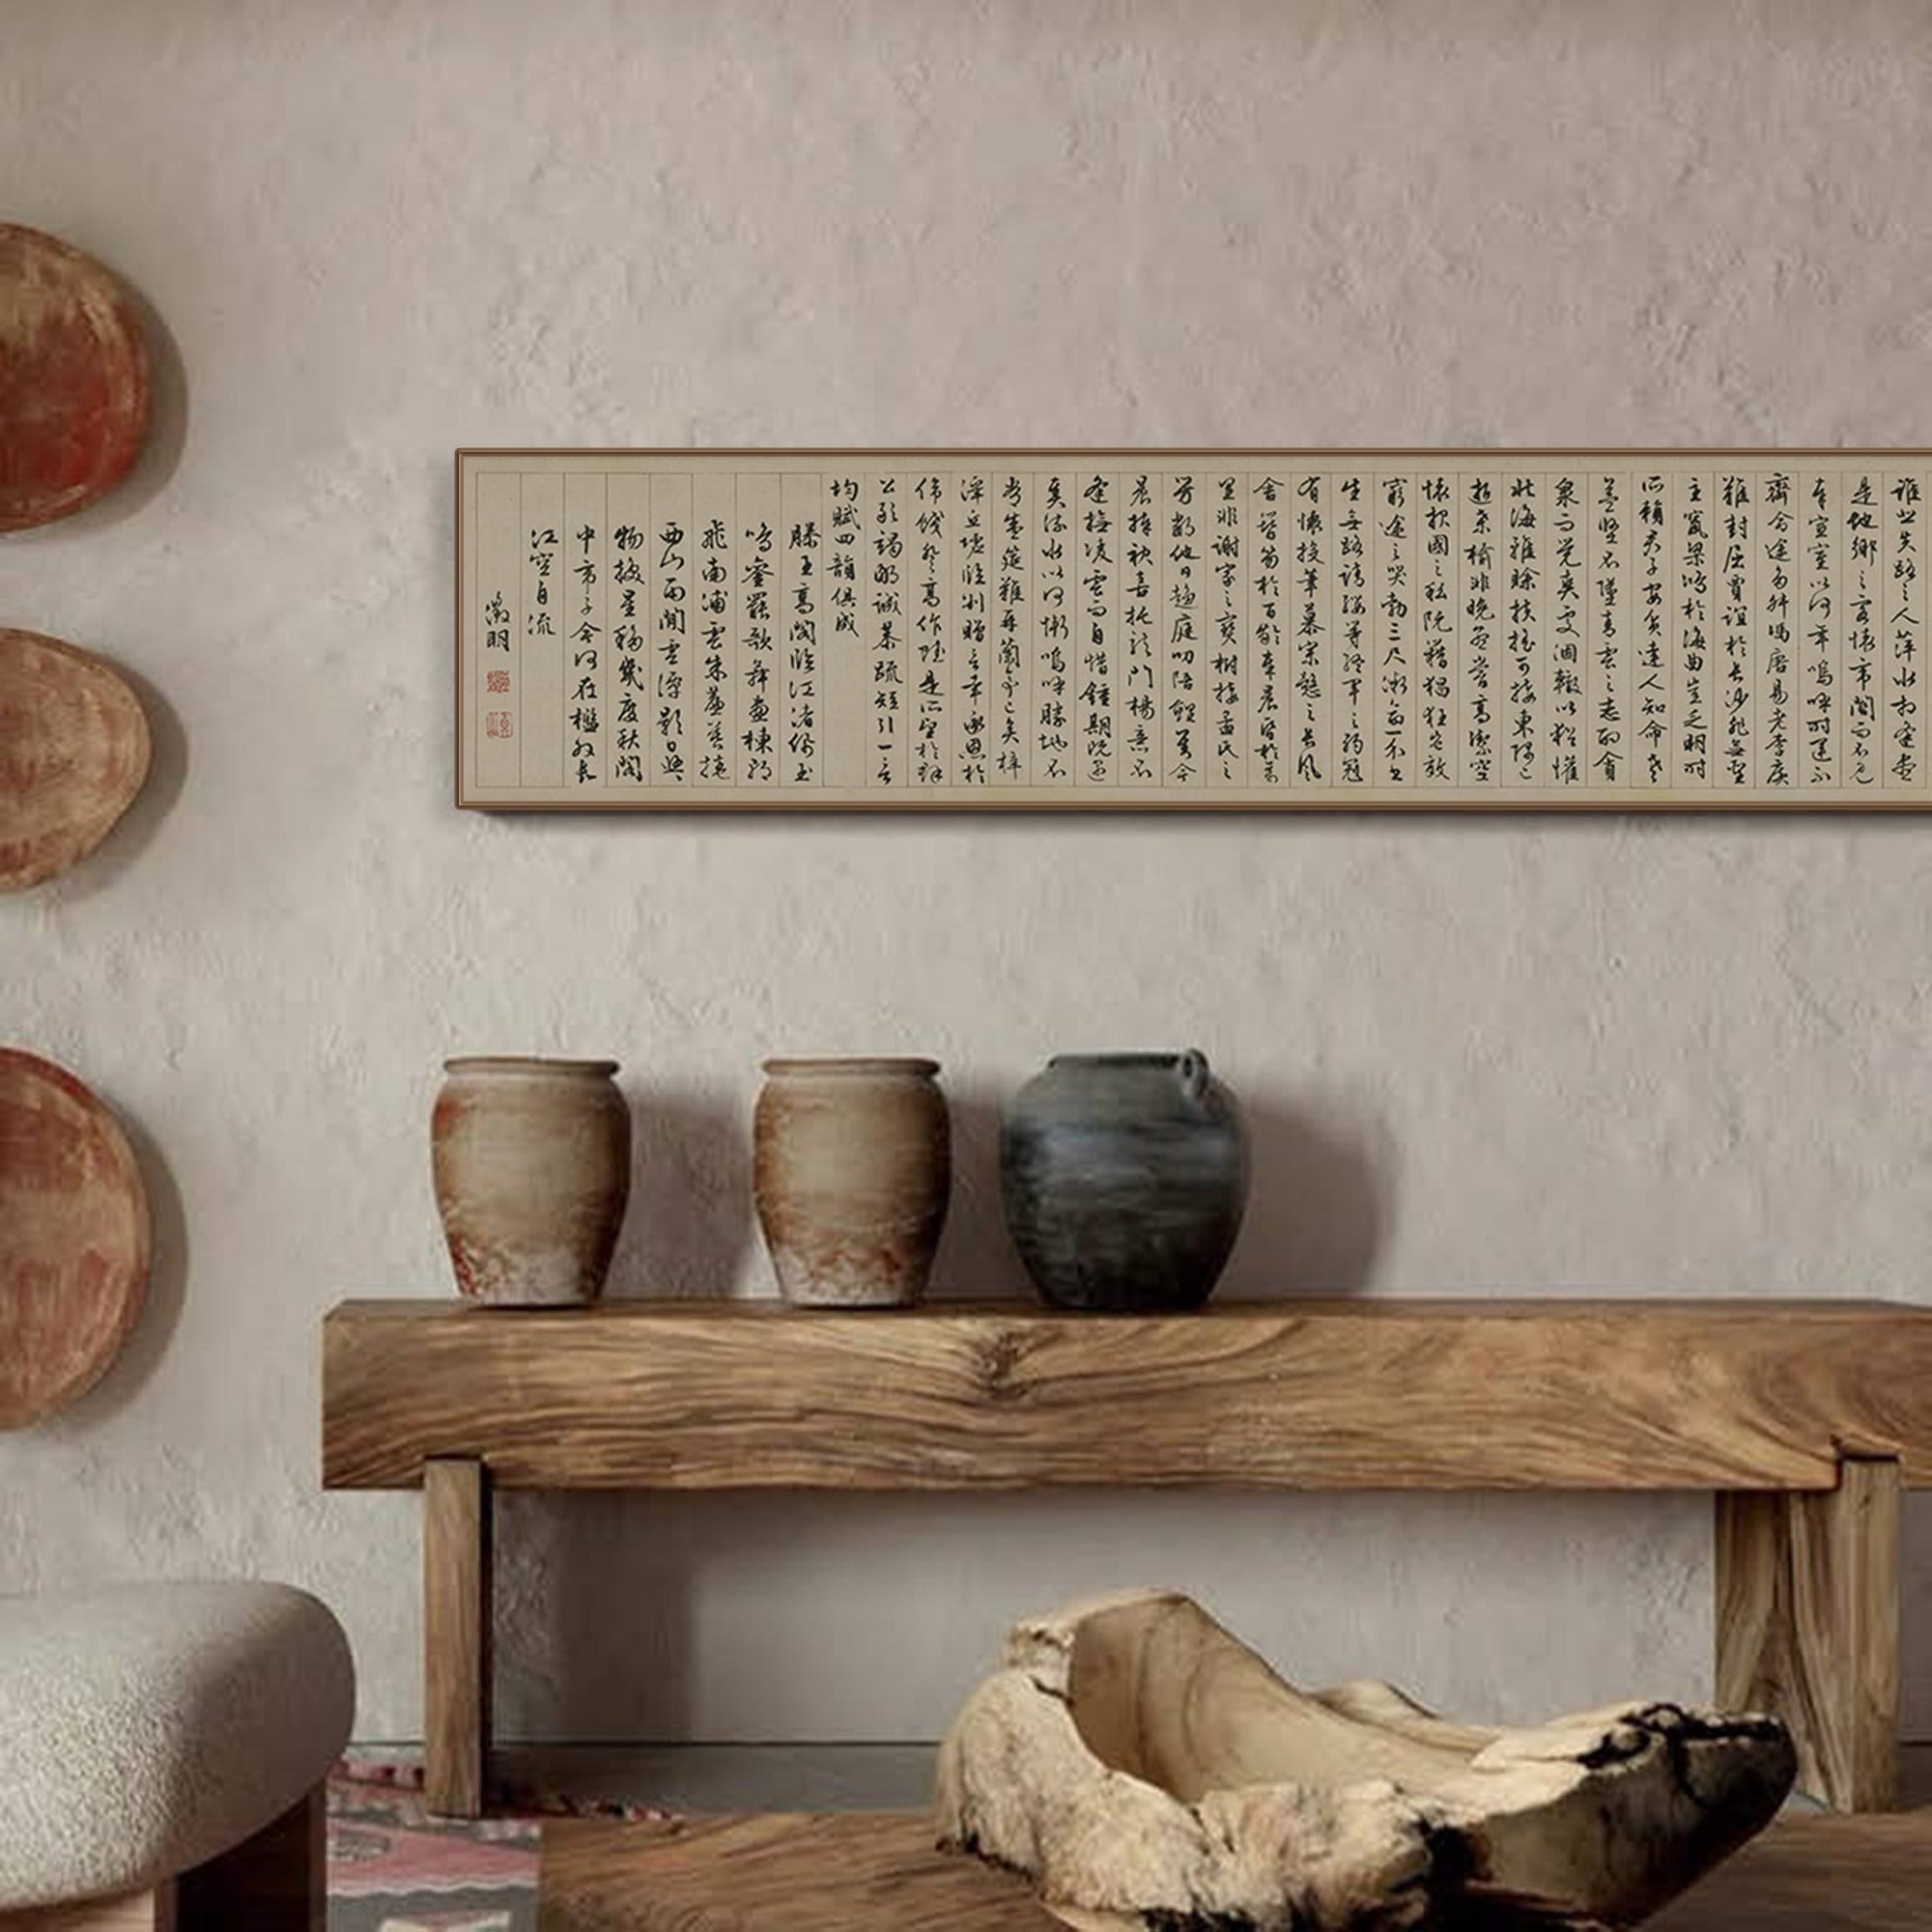 誰悲失路之人萍水相逢盡
是他鄉之客懷帝閽而不見
奉宣室以何年嗚呼時運不
齊命途多舛馮唐易老李廣
難封屈賈誼於長沙非無聖
主竄梁鴻於海曲豈乏明時
所賴君子安貧達人知命老
益堅不墜青雲之志酌貪
泉而覺爽處涸轍以猶懽
北海雖賒扶搖可接東隅已
逝桑榆非晚孟嘗高潔空
懷報國之私阮籍猖狂豈效
窮途之哭勃三尺微命一介書
生無路請纓等終軍之弱冠
有懷投筆慕宗愨之長風
舍簪笏於百齡奉晨昏於萬
里非謝家之寶樹接孟氏之
芳鄰他日趨庭叨陪鯉對今
晨捧袂喜托龍門楊意不
逢撫凌雲而自惜鍾期既遇
奏流水以何慚嗚呼勝地不
常盛筵難再蘭亭已矣梓
澤丘墟臨別贈言幸承恩於
偉餞登高作賦是所望於群
公敢竭鄙誠恭疏短引一言
均賦四韻俱成
滕王高閣臨江渚佩玉
鳴鑾罷歌舞畫棟朝
飛南浦雲朱簾暮捲
西山雨閒雲潭影日悠
物換星移幾度秋閣
中帝子今何在檻外長
江空自流
徵明